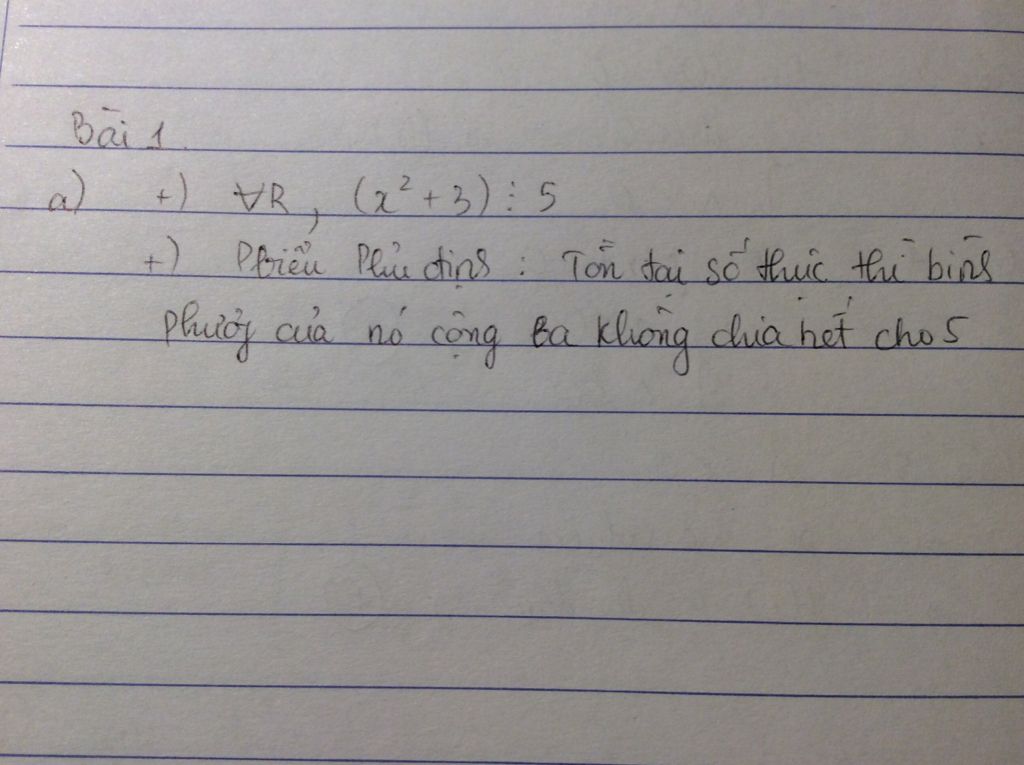 Bài 1.
a) +) ∀R, (x² + 3) ⋮ 5
+) Pbiểu Phủ định : Tồn tại số thực thì bình
phương của nó cộng ba không chia hết cho 5